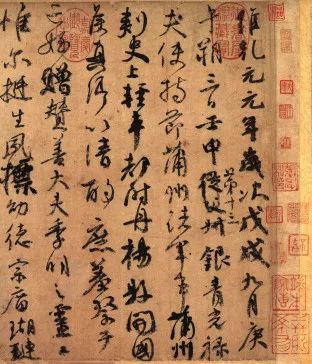 維乾元元年歲次戊戌九月庚
午朔三日壬申第十三從父銀青光祿
夫使持節蒲州諸軍事蒲州
刺史上輕車都尉丹楊縣開國
侯真卿以清酌庶羞祭于
亡姪贈贊善大夫季明之靈
惟爾挺生夙標幼德宗廟瑚璉